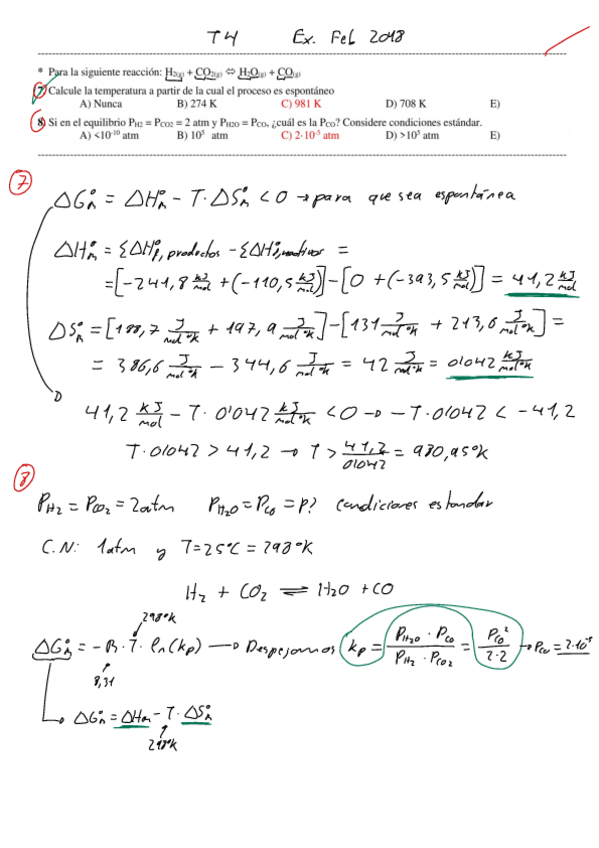 T4 Ex. Feb 2018
* Para la siguiente reacción: H2(g) + CO2(g) ⇔ H2O(g) + CO(g)
7) Calcule la temperatura a partir de la cual el proceso es espontáneo
A) Nunca B) 274 K C) 981 K D) 708 K E)
8) Si en el equilibrio PH2 = PCO2 = 2 atm y PH2O = PCO, ¿cuál es la PCO? Considere condiciones estándar.
A) <10⁻¹⁰ atm B) 10⁵ atm C) 2·10⁻⁵ atm D) >10⁵ atm E)
7
ΔG°r = ΔH°r - T·ΔS°r < 0 → para que sea espontánea
ΔH°r = ΣΔH°f, productos - ΣΔH°f, reactivos =
= [-241,8 kJ/mol + (-110,5 kJ/mol)] - [0 + (-393,5 kJ/mol)] = 41,2 kJ/mol
ΔS°r = [188,7 J/mol°K + 197,9 J/mol°K] - [131 J/mol°K + 213,6 J/mol°K] =
= 386,6 J/mol°K - 344,6 J/mol°K = 42 J/mol°K = 0'042 kJ/mol°K
41,2 kJ/mol - T·0'042 kJ/mol°K < 0 → -T·0'042 < -41,2
T·0'042 > 41,2 → T > 41,2/0'042 = 980,95°K
8
PH2 = PCO2 = 2atm PH2O = PCO = P? Condiciones estandar
C.N: 1atm y T=25°C = 298°K
H2 + CO2 ⇌ H2O + CO
298°K
ΔG°r = -R·T·ln(kp) → Despejamos kp = PH2O · PCO / PH2 · PCO2 = PCO² / 2·2 → PCO = 2·10⁻⁵
8,31
ΔG°r = ΔHr - T·ΔS°r
298°K